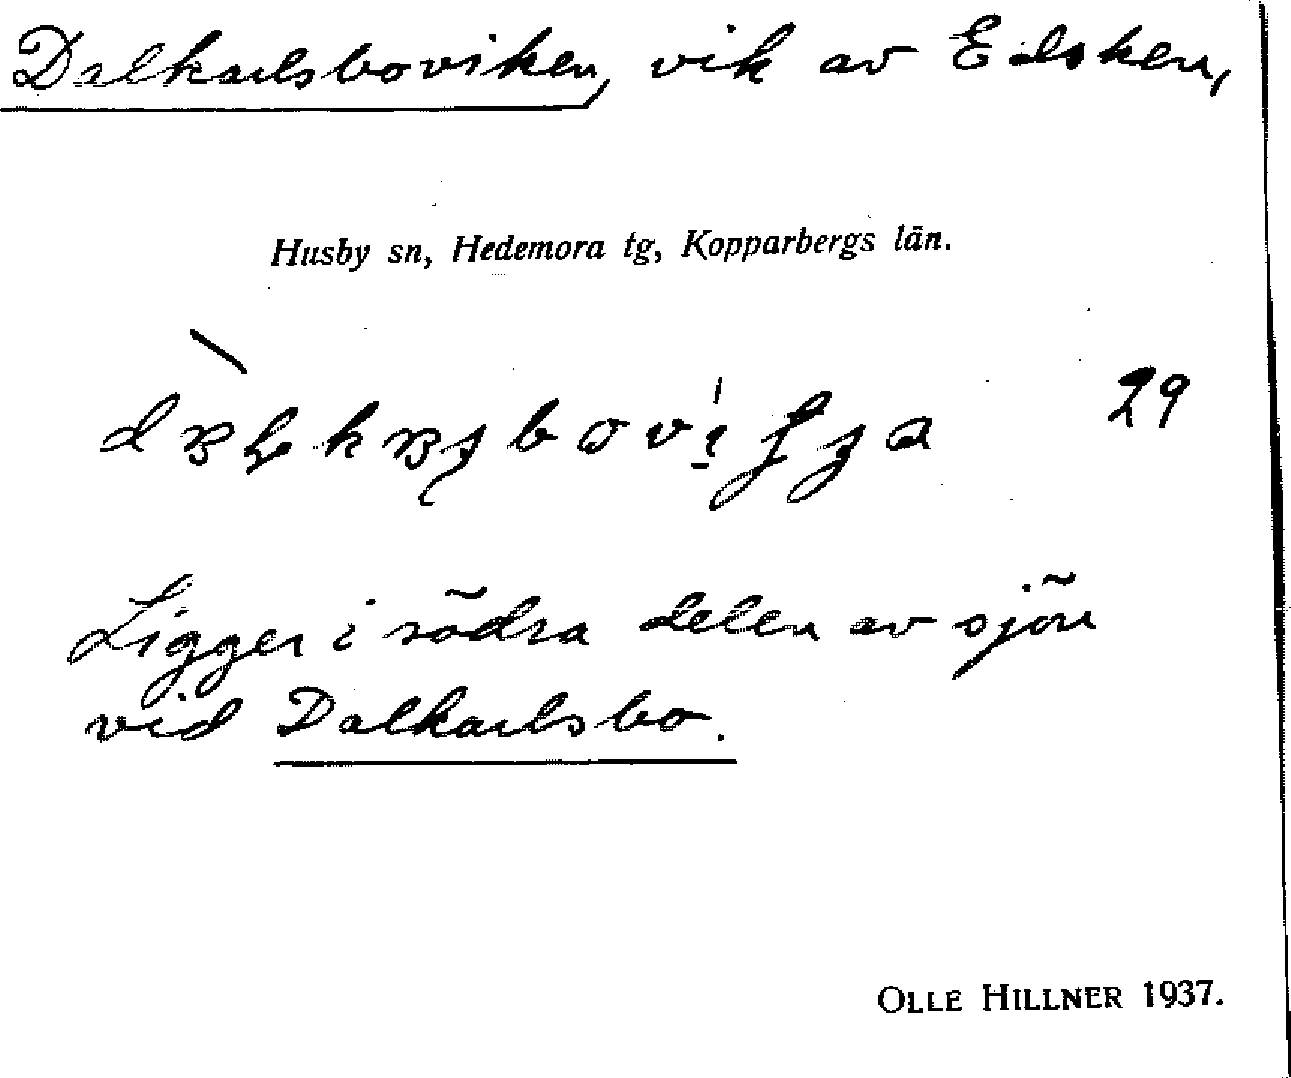 Dalkarlsboviken, vik av Edsken,
Husby sn, Hedemora tg, Kopparbergs län.
29
Ligger i södra delen av sjön
vid Dalkarlsbo.
OLLE HILLNER 1937.